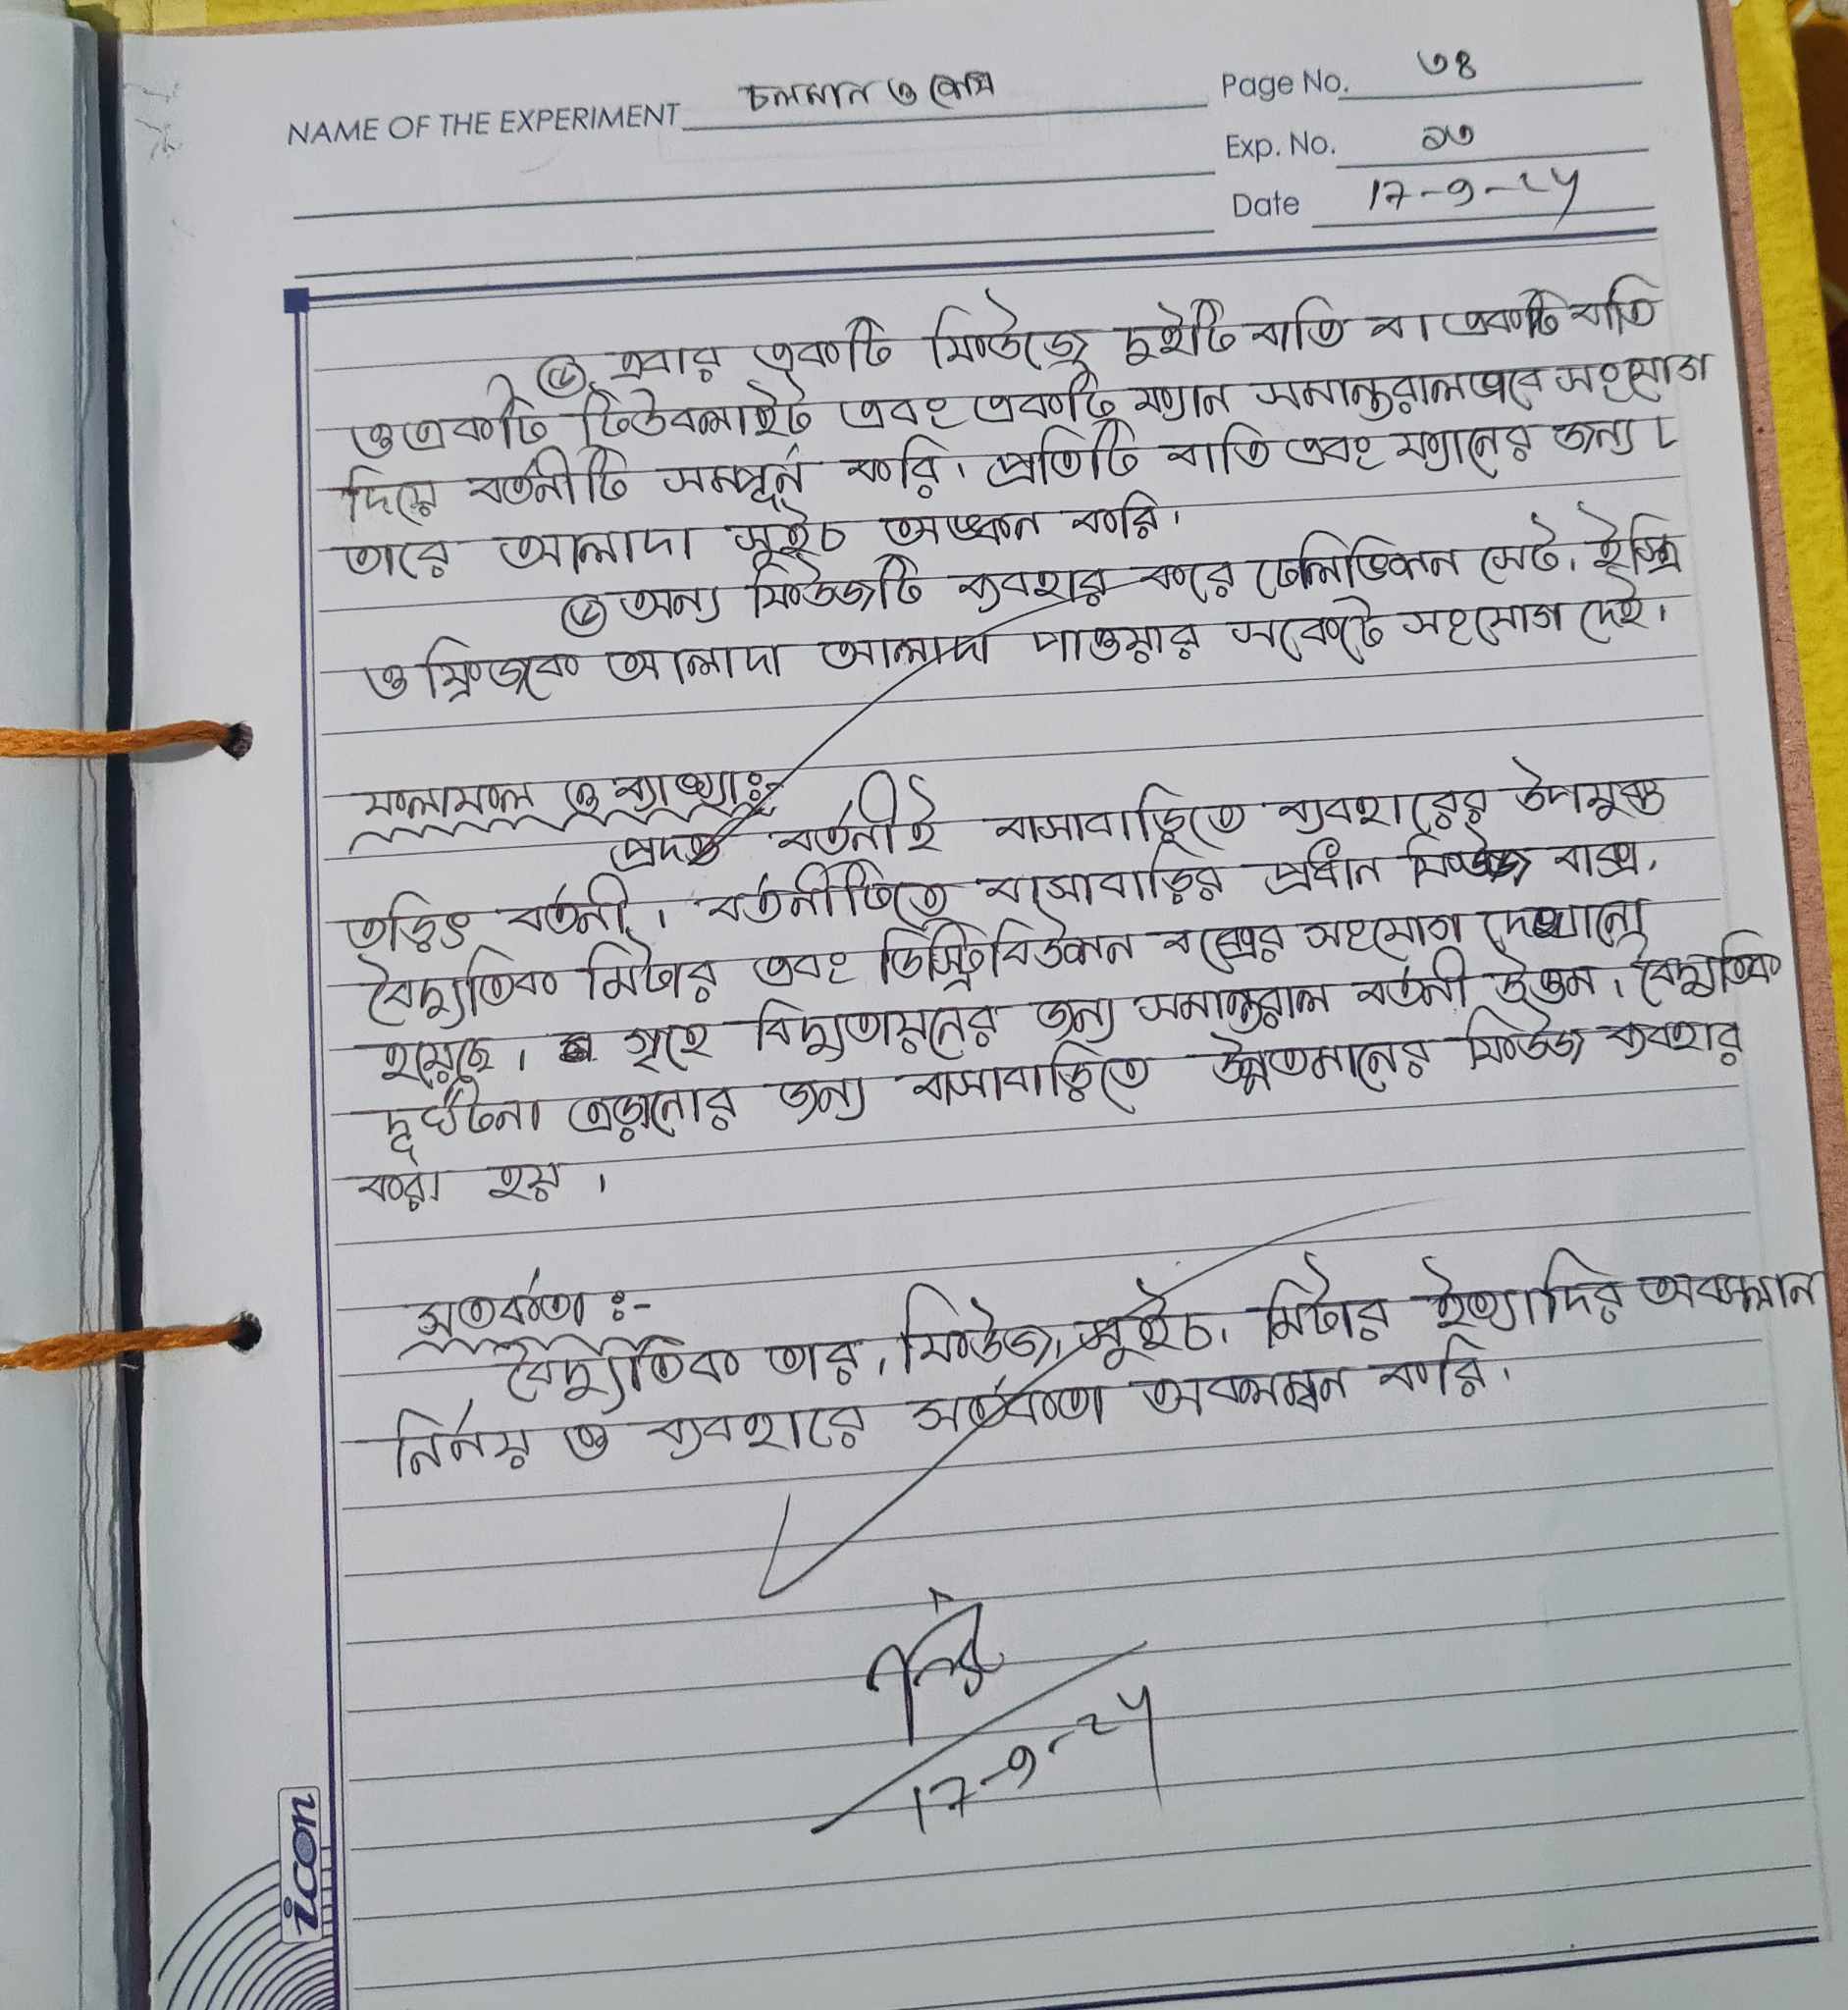 NAME OF THE EXPERIMENT চলমান ও শেষ
Page No. ৩৪
Exp. No. ১৩
Date 17-9-24
এবার একটি ফিউজে দুইটি বাতি বা একটি বাতি
ও একটি টিউবলাইট এবং একটি ফ্যান সমান্তরালভাবে সংযোগ
দিয়ে বর্তনীটি সম্পূর্ন করি। প্রতিটি বাতি এবং ফ্যানের জন্য L
তারে আলাদা সুইচ অঙ্কন করি।
৬ অন্য ফিউজটি ব্যবহার করে টেলিভিশন সেট, ইস্ত্রি
ও ফ্রিজকে আলাদা আলাদা পাওয়ার সকেটে সংযোগ দেই।
ফলাফল ও ব্যাখ্যাঃ-
প্রদত্ত বর্তনীই বাসাবাড়িতে ব্যবহারের উপযুক্ত
তড়িৎ বর্তনী। বর্তনীটিতে বাসাবাড়ির প্রধান ফিউজ বাক্স,
বৈদ্যুতিক মিটার এবং ডিস্ট্রিবিউশন বক্সের সংযোগ দেখানো
হয়েছে। গৃহে বিদ্যুতায়নের জন্য সমান্তরাল বর্তনী উত্তম। বৈদ্যুতিক
দূর্ঘটনা এড়ানোর জন্য বাসাবাড়িতে উন্নতমানের ফিউজ ব্যবহার
করা হয়।
সতর্কতা ঃ-
বৈদ্যুতিক তার, ফিউজ, সুইচ, মিটার ইত্যাদির অবস্থান
নির্নয় ও ব্যবহারে সর্তকতা অবলম্বন করি।
17-9-24
icon